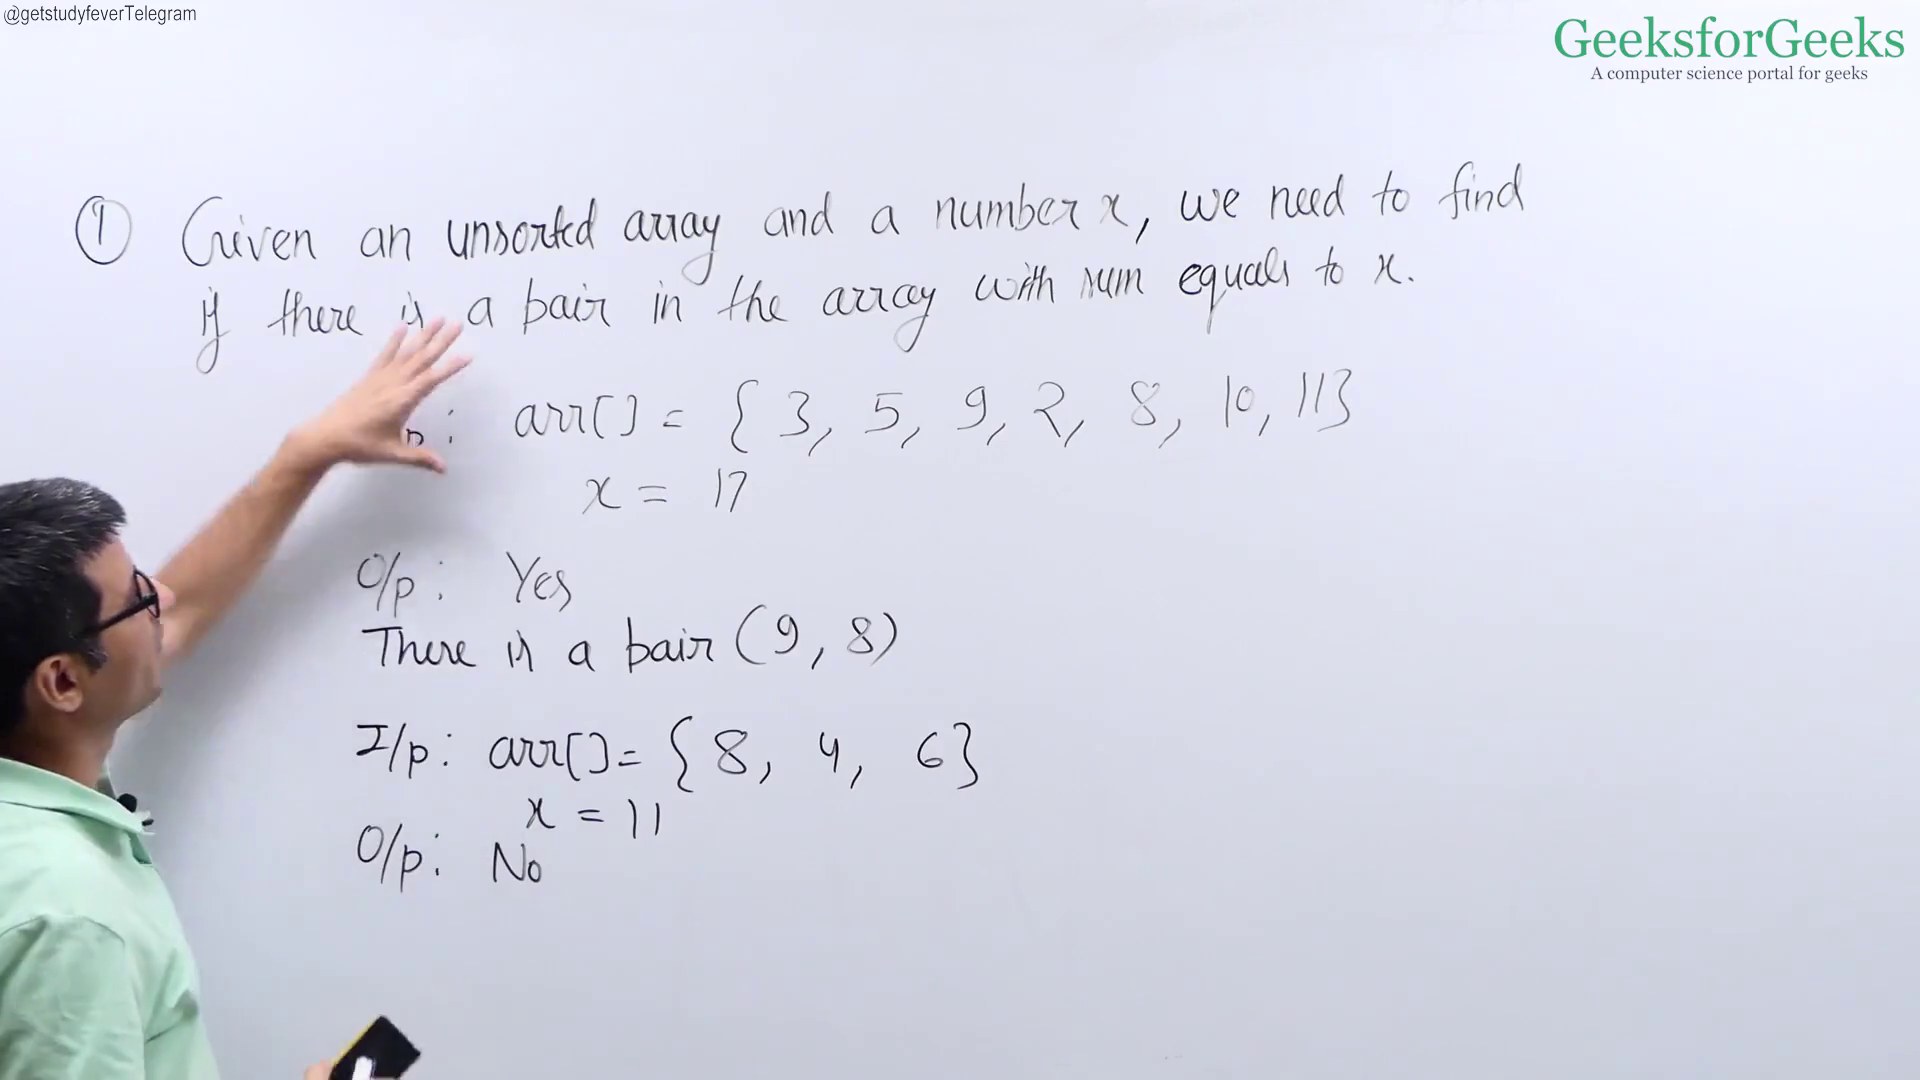 @getstudyfeverTelegram
GeeksforGeeks
A computer science portal for geeks
① Given an unsorted array and a number x, we need to find
if there is a pair in the array with sum equals to x.
p: arr[] = {3, 5, 9, 2, 8, 10, 11}
x = 17
O/p: Yes
There is a pair (9, 8)
I/p: arr[] = {8, 4, 6}
x = 11
O/p: No